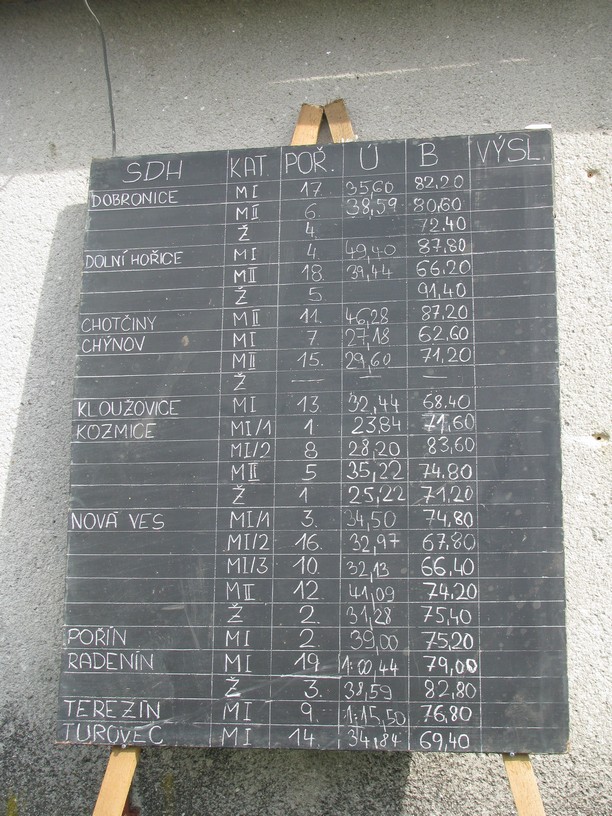 SDH KAT. POŘ. Ú B VÝSL.
DOBRONICE MI 17. 35,60 82,20
MII 6. 38,59 80,60
Ž 4. 72.40
DOLNÍ HOŘICE MI 4. 49,40 87.80
MII 18. 39,44 66.20
Ž 5. 91,40
CHOTČINY MII 11. 46,28 87,20
CHÝNOV MI 7. 27,18 62.60
MII 15. 29,60 71,20
Ž — — —
KLOUŽOVICE MI 13. 32,44 68.40
KOZMICE MI/1 1 2384 71.60
MI/2 8 28,20 83,60
MII 5 35,22 74.80
Ž 1. 25,22 71,20
NOVÁ VES MI/1 3. 34,50 74,80
MI/2 16. 32,97 67.80
MI/3 10. 32,13 66,40
MII 12 41,09 74,20
Ž 2. 31,28 75,40
POŘÍN MI 2. 39,00 75,20
RADENÍN MI 19. 1:00,44 79,00
Ž 3. 38,59 82,80
TEREZÍN MI 9. 1:15,50 76,80
TUROVEC MI 14. 34,84 69,40